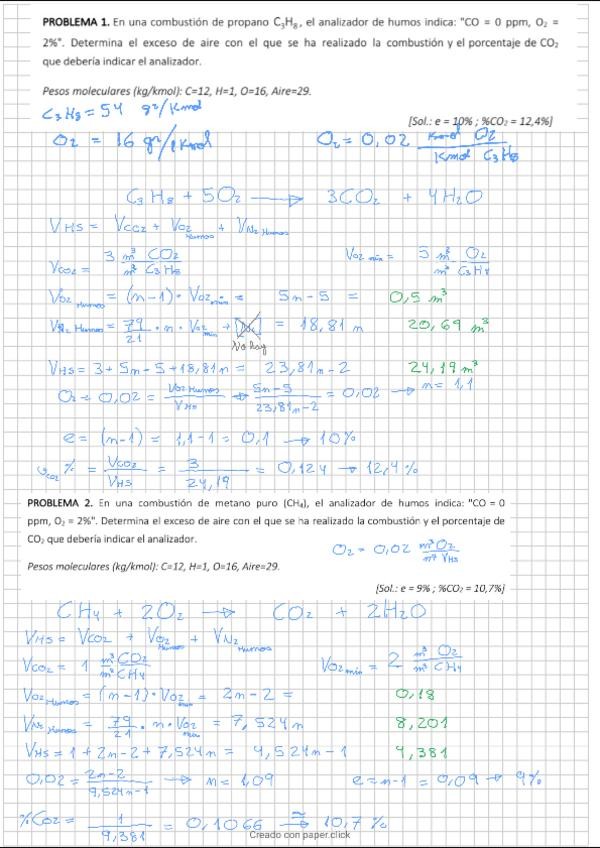 PROBLEMA 1. En una combustión de propano C₃H₈, el analizador de humos indica: "CO = 0 ppm, O₂ =
2%". Determina el exceso de aire con el que se ha realizado la combustión y el porcentaje de CO₂
que debería indicar el analizador.
Pesos moleculares (kg/kmol): C=12, H=1, O=16, Aire=29.
C₃H₈ = 54 gr/Kmol
[Sol.: e = 10% ; %CO₂ = 12,4%]
O₂ = 16 gr/Kmol O₂ = 0,02 Kmol O₂ / Kmol C₃H₈
C₃H₈ + 5O₂ → 3CO₂ + 4H₂O
VHS = VCO2 + VO2 Humos + VN2 Humos
VCO2 = 3 m³ CO₂ / m³ C₃H₈ VO2 min = 5 m³ O₂ / m³ C₃H₈
VO2 Humos = (n-1) · VO2 min = 5n-5 = 0,5 m³
VN2 Humos = 79/21 · n · VO2 min + [N₂] = 18,81 n 20,69 m³
No hay
VHS = 3 + 5n - 5 + 18,81n = 23,81n - 2 24,19 m³
O₂ = 0,02 = VO2 Humos / VHS → 5n-5 / 23,81n-2 = 0,02 → n = 1,1
e = (n-1) = 1,1-1 = 0,1 → 10%
CO2 % = VCO2 / VHS = 3 / 24,19 = 0,124 → 12,4%
PROBLEMA 2. En una combustión de metano puro (CH₄), el analizador de humos indica: "CO = 0
ppm, O₂ = 2%". Determina el exceso de aire con el que se ha realizado la combustión y el porcentaje de
CO₂ que debería indicar el analizador.
O₂ = 0,02 m³ O₂ / m³ VHS
Pesos moleculares (kg/kmol): C=12, H=1, O=16, Aire=29.
[Sol.: e = 9% ; %CO₂ = 10,7%]
CH₄ + 2O₂ → CO₂ + 2H₂O
VHS = VCO2 + VO2 Humos + VN2 Humos
VCO2 = 1 m³ CO₂ / m³ CH₄ VO2 min = 2 m³ O₂ / m³ CH₄
VO2 Humos = (n-1) · VO2 min = 2n-2 = 0,18
VN2 Humos = 79/21 · n · VO2 min = 7,524 n 8,201
VHS = 1 + 2n - 2 + 7,524n = 9,524n - 1 9,381
0,02 = 2n-2 / 9,524n-1 → n = 1,09 e = n-1 = 0,09 → 9%
%CO₂ = 1 / 9,381 = 0,1066 ≃→ 10,7 %
Creado con paper.click